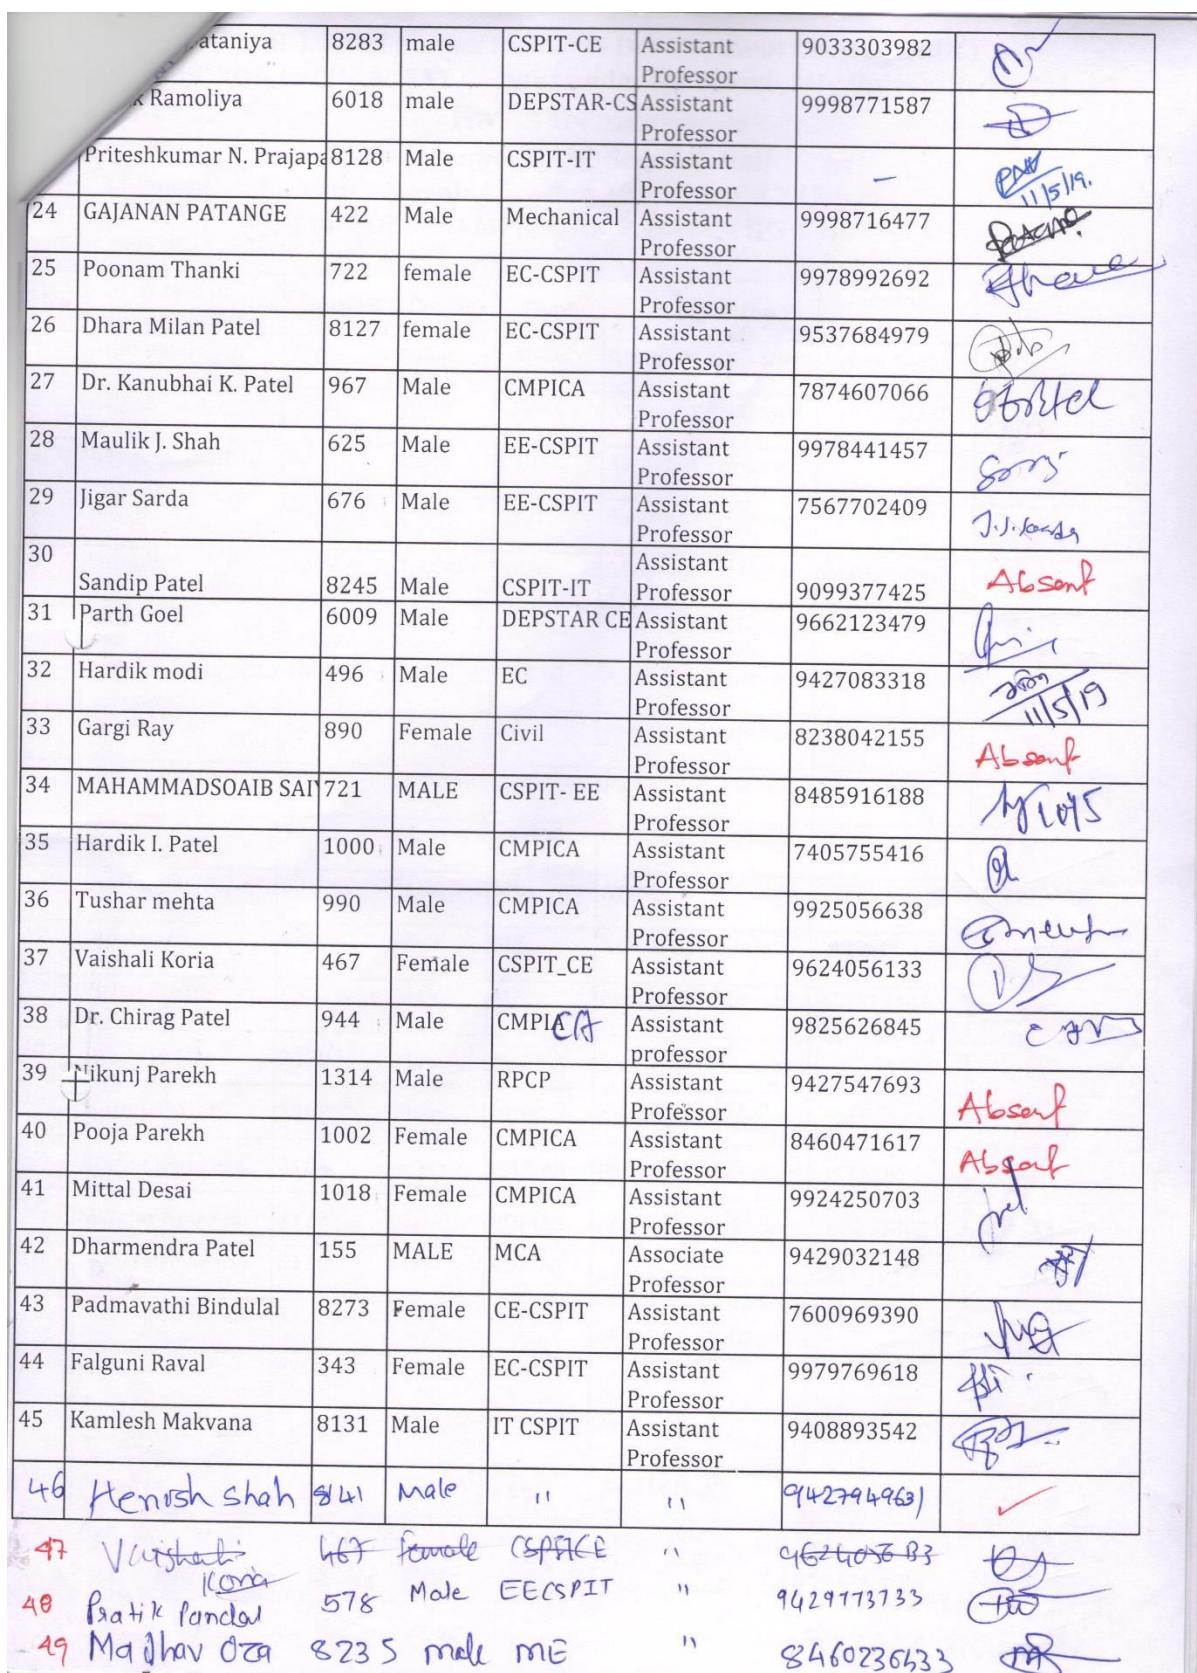 ataniya 8283 male CSPIT-CE Assistant Professor 9033303982
Ramoliya 6018 male DEPSTAR-CS Assistant Professor 9998771587
Priteshkumar N. Prajapa 8128 Male CSPIT-IT Assistant Professor – 11/5/19.
24 GAJANAN PATANGE 422 Male Mechanical Assistant Professor 9998716477
25 Poonam Thanki 722 female EC-CSPIT Assistant Professor 9978992692
26 Dhara Milan Patel 8127 female EC-CSPIT Assistant Professor 9537684979
27 Dr. Kanubhai K. Patel 967 Male CMPICA Assistant Professor 7874607066
28 Maulik J. Shah 625 Male EE-CSPIT Assistant Professor 9978441457
29 Jigar Sarda 676 Male EE-CSPIT Assistant Professor 7567702409
30 Sandip Patel 8245 Male CSPIT-IT Assistant Professor 9099377425 Absent
31 Parth Goel 6009 Male DEPSTAR CE Assistant Professor 9662123479
32 Hardik modi 496 Male EC Assistant Professor 9427083318 11/5/19
33 Gargi Ray 890 Female Civil Assistant Professor 8238042155 Absent
34 MAHAMMADSOAIB SAIY 721 MALE CSPIT- EE Assistant Professor 8485916188
35 Hardik I. Patel 1000 Male CMPICA Assistant Professor 7405755416
36 Tushar mehta 990 Male CMPICA Assistant Professor 9925056638
37 Vaishali Koria 467 Female CSPIT_CE Assistant Professor 9624056133
38 Dr. Chirag Patel 944 Male CMPICA Assistant professor 9825626845
39 Nikunj Parekh 1314 Male RPCP Assistant Professor 9427547693 Absent
40 Pooja Parekh 1002 Female CMPICA Assistant Professor 8460471617 Absent
41 Mittal Desai 1018 Female CMPICA Assistant Professor 9924250703
42 Dharmendra Patel 155 MALE MCA Associate Professor 9429032148
43 Padmavathi Bindulal 8273 Female CE-CSPIT Assistant Professor 7600969390
44 Falguni Raval 343 Female EC-CSPIT Assistant Professor 9979769618
45 Kamlesh Makvana 8131 Male IT CSPIT Assistant Professor 9408893542
46 Shah 8141 Male " " 9427949631
47 Vaishali Koria 467 female CSPITCE " 9624056133
48 Pratik 578 Male EECSPIT " 9429773733
49 Madhav Oza 8235 male ME " 8460236433